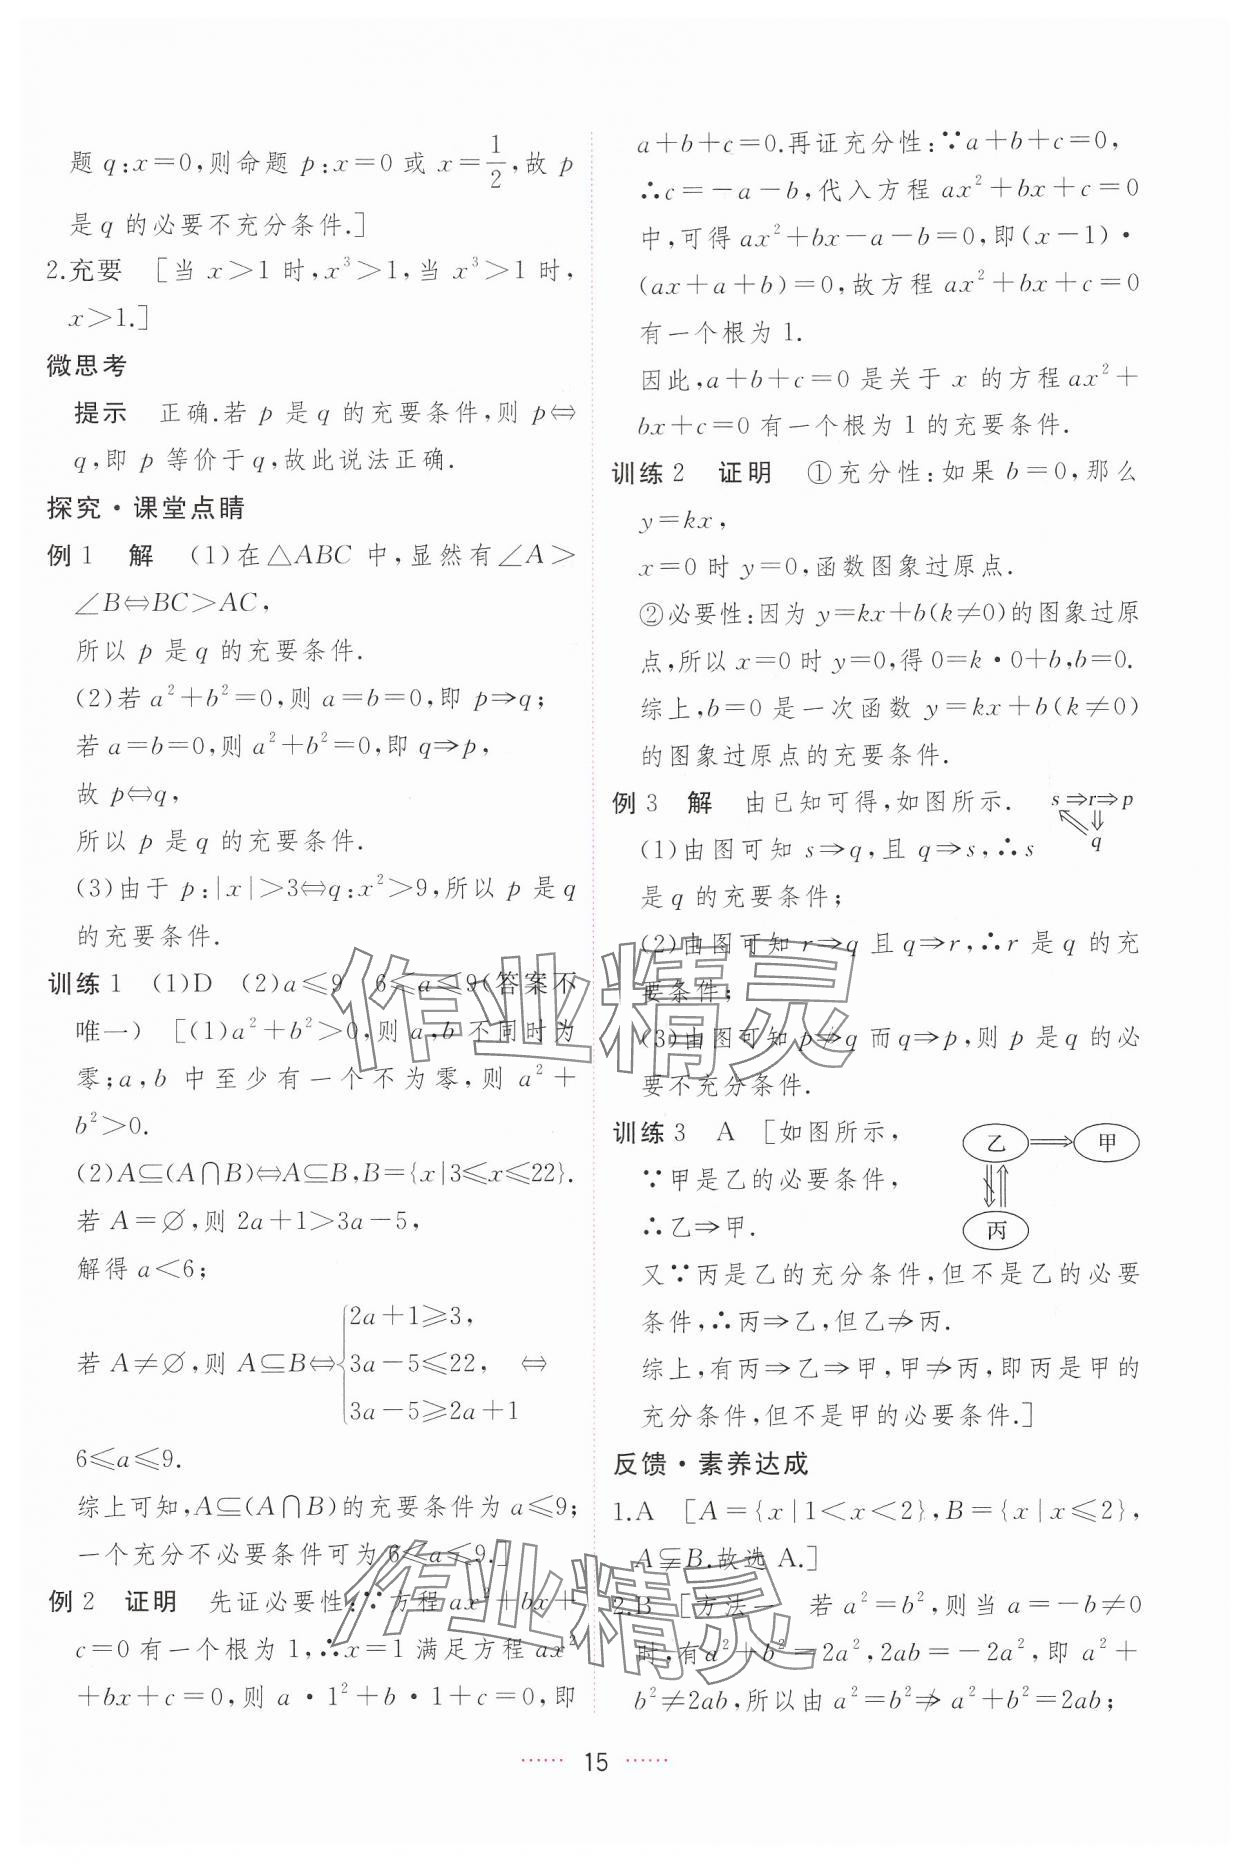 题 q:x=0,则命题 p:x=0 或 x=1/2,故 p
是 q 的必要不充分条件.]
2.充要 [当 x>1 时,x³>1,当 x³>1 时,
x>1.]
微思考
提示 正确.若 p 是 q 的充要条件,则 p⇔
q,即 p 等价于 q,故此说法正确.
探究·课堂点睛
例 1 解 (1)在△ABC 中,显然有∠A>
∠B⇔BC>AC,
所以 p 是 q 的充要条件.
(2)若 a²+b²=0,则 a=b=0,即 p⇒q;
若 a=b=0,则 a²+b²=0,即 q⇒p,
故 p⇔q,
所以 p 是 q 的充要条件.
(3)由于 p:|x|>3⇔q:x²>9,所以 p 是 q
的充要条件.
训练 1 (1)D (2)a≤9 6≤a≤9(答案不
唯一) [(1)a²+b²>0,则 a,b 不同时为
零;a,b 中至少有一个不为零,则 a²+
b²>0.
(2)A⊆(A∩B)⇔A⊆B,B={x|3≤x≤22}.
若 A=∅,则 2a+1>3a-5,
解得 a<6;
若 A≠∅,则 A⊆B⇔{2a+1≥3, 3a-5≤22, 3a-5≥2a+1 ⇔
6≤a≤9.
综上可知,A⊆(A∩B)的充要条件为 a≤9;
一个充分不必要条件可为 6≤a≤9.]
例 2 证明 先证必要性:∵方程 ax²+bx+
c=0 有一个根为 1,∴x=1 满足方程 ax²
+bx+c=0,则 a·1²+b·1+c=0,即
a+b+c=0.再证充分性:∵a+b+c=0,
∴c=-a-b,代入方程 ax²+bx+c=0
中,可得 ax²+bx-a-b=0,即(x-1)·
(ax+a+b)=0,故方程 ax²+bx+c=0
有一个根为 1.
因此,a+b+c=0 是关于 x 的方程 ax²+
bx+c=0 有一个根为 1 的充要条件.
训练 2 证明 ①充分性:如果 b=0,那么
y=kx,
x=0 时 y=0,函数图象过原点.
②必要性:因为 y=kx+b(k≠0)的图象过原
点,所以 x=0 时 y=0,得 0=k·0+b,b=0.
综上,b=0 是一次函数 y=kx+b(k≠0)
的图象过原点的充要条件.
例 3 解 由已知可得,如图所示.
s⇒r⇒p
q
(1)由图可知 s⇒q,且 q⇒s,∴s
是 q 的充要条件;
(2)由图可知 r⇒q 且 q⇒r,∴r 是 q 的充
要条件;
(3)由图可知 p⇏q 而 q⇒p,则 p 是 q 的必
要不充分条件.
训练 3 A [如图所示,
乙 甲
丙
∵甲是乙的必要条件,
∴乙⇒甲.
又∵丙是乙的充分条件,但不是乙的必要
条件,∴丙⇒乙,但乙⇏丙.
综上,有丙⇒乙⇒甲,甲⇏丙,即丙是甲的
充分条件,但不是甲的必要条件.]
反馈·素养达成
1.A [A={x|1<x<2},B={x|x≤2},
A⫋B.故选 A.]
2.B [方法一 若 a²=b²,则当 a=-b≠0
时,有 a²+b²=2a²,2ab=-2a²,即 a²+
b²≠2ab,所以由 a²=b²⇏a²+b²=2ab;
15
作业精灵
作业精灵